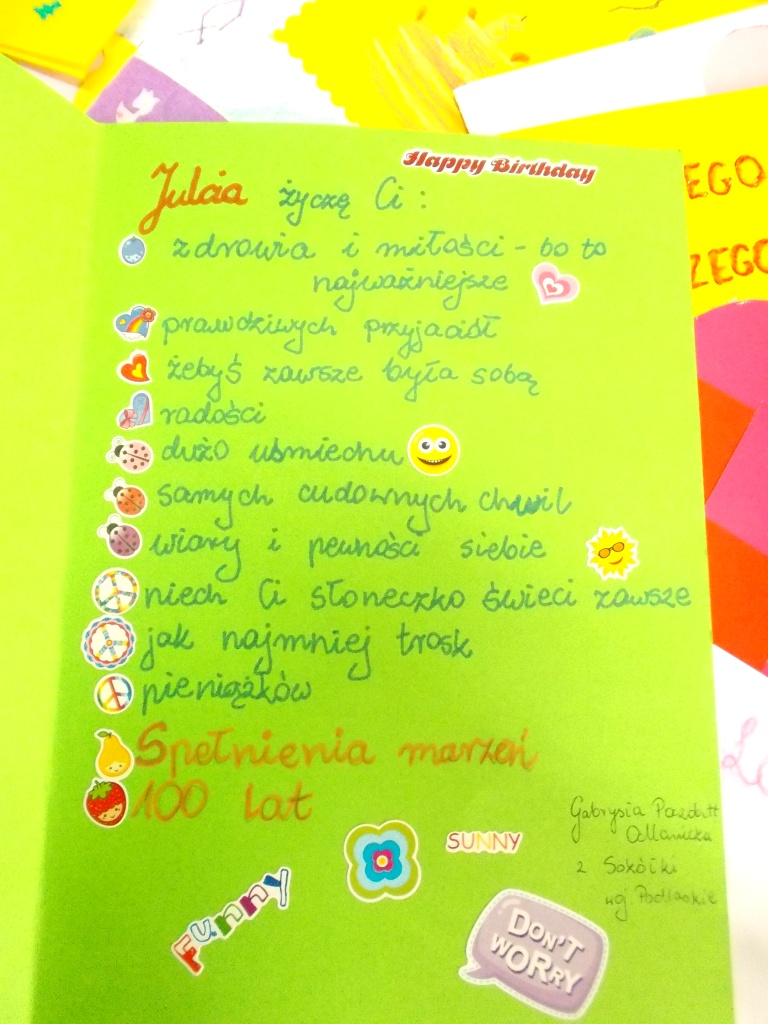 Happy Birthday
Julcia życzę Ci :
zdrowia i miłości - bo to
najważniejsze
prawdziwych przyjaciół
żebyś zawsze była sobą
radości
dużo uśmiechu
samych cudownych chwil
wiary i pewności siebie
niech Ci słoneczko świeci zawsze
jak najmniej trosk
pieniążków
Spełnienia marzeń
100 lat
Gabrysia
z Sokółki
woj. Podlaskie
SUNNY
Funny
DON'T
WORRY
EGO
ZEGO